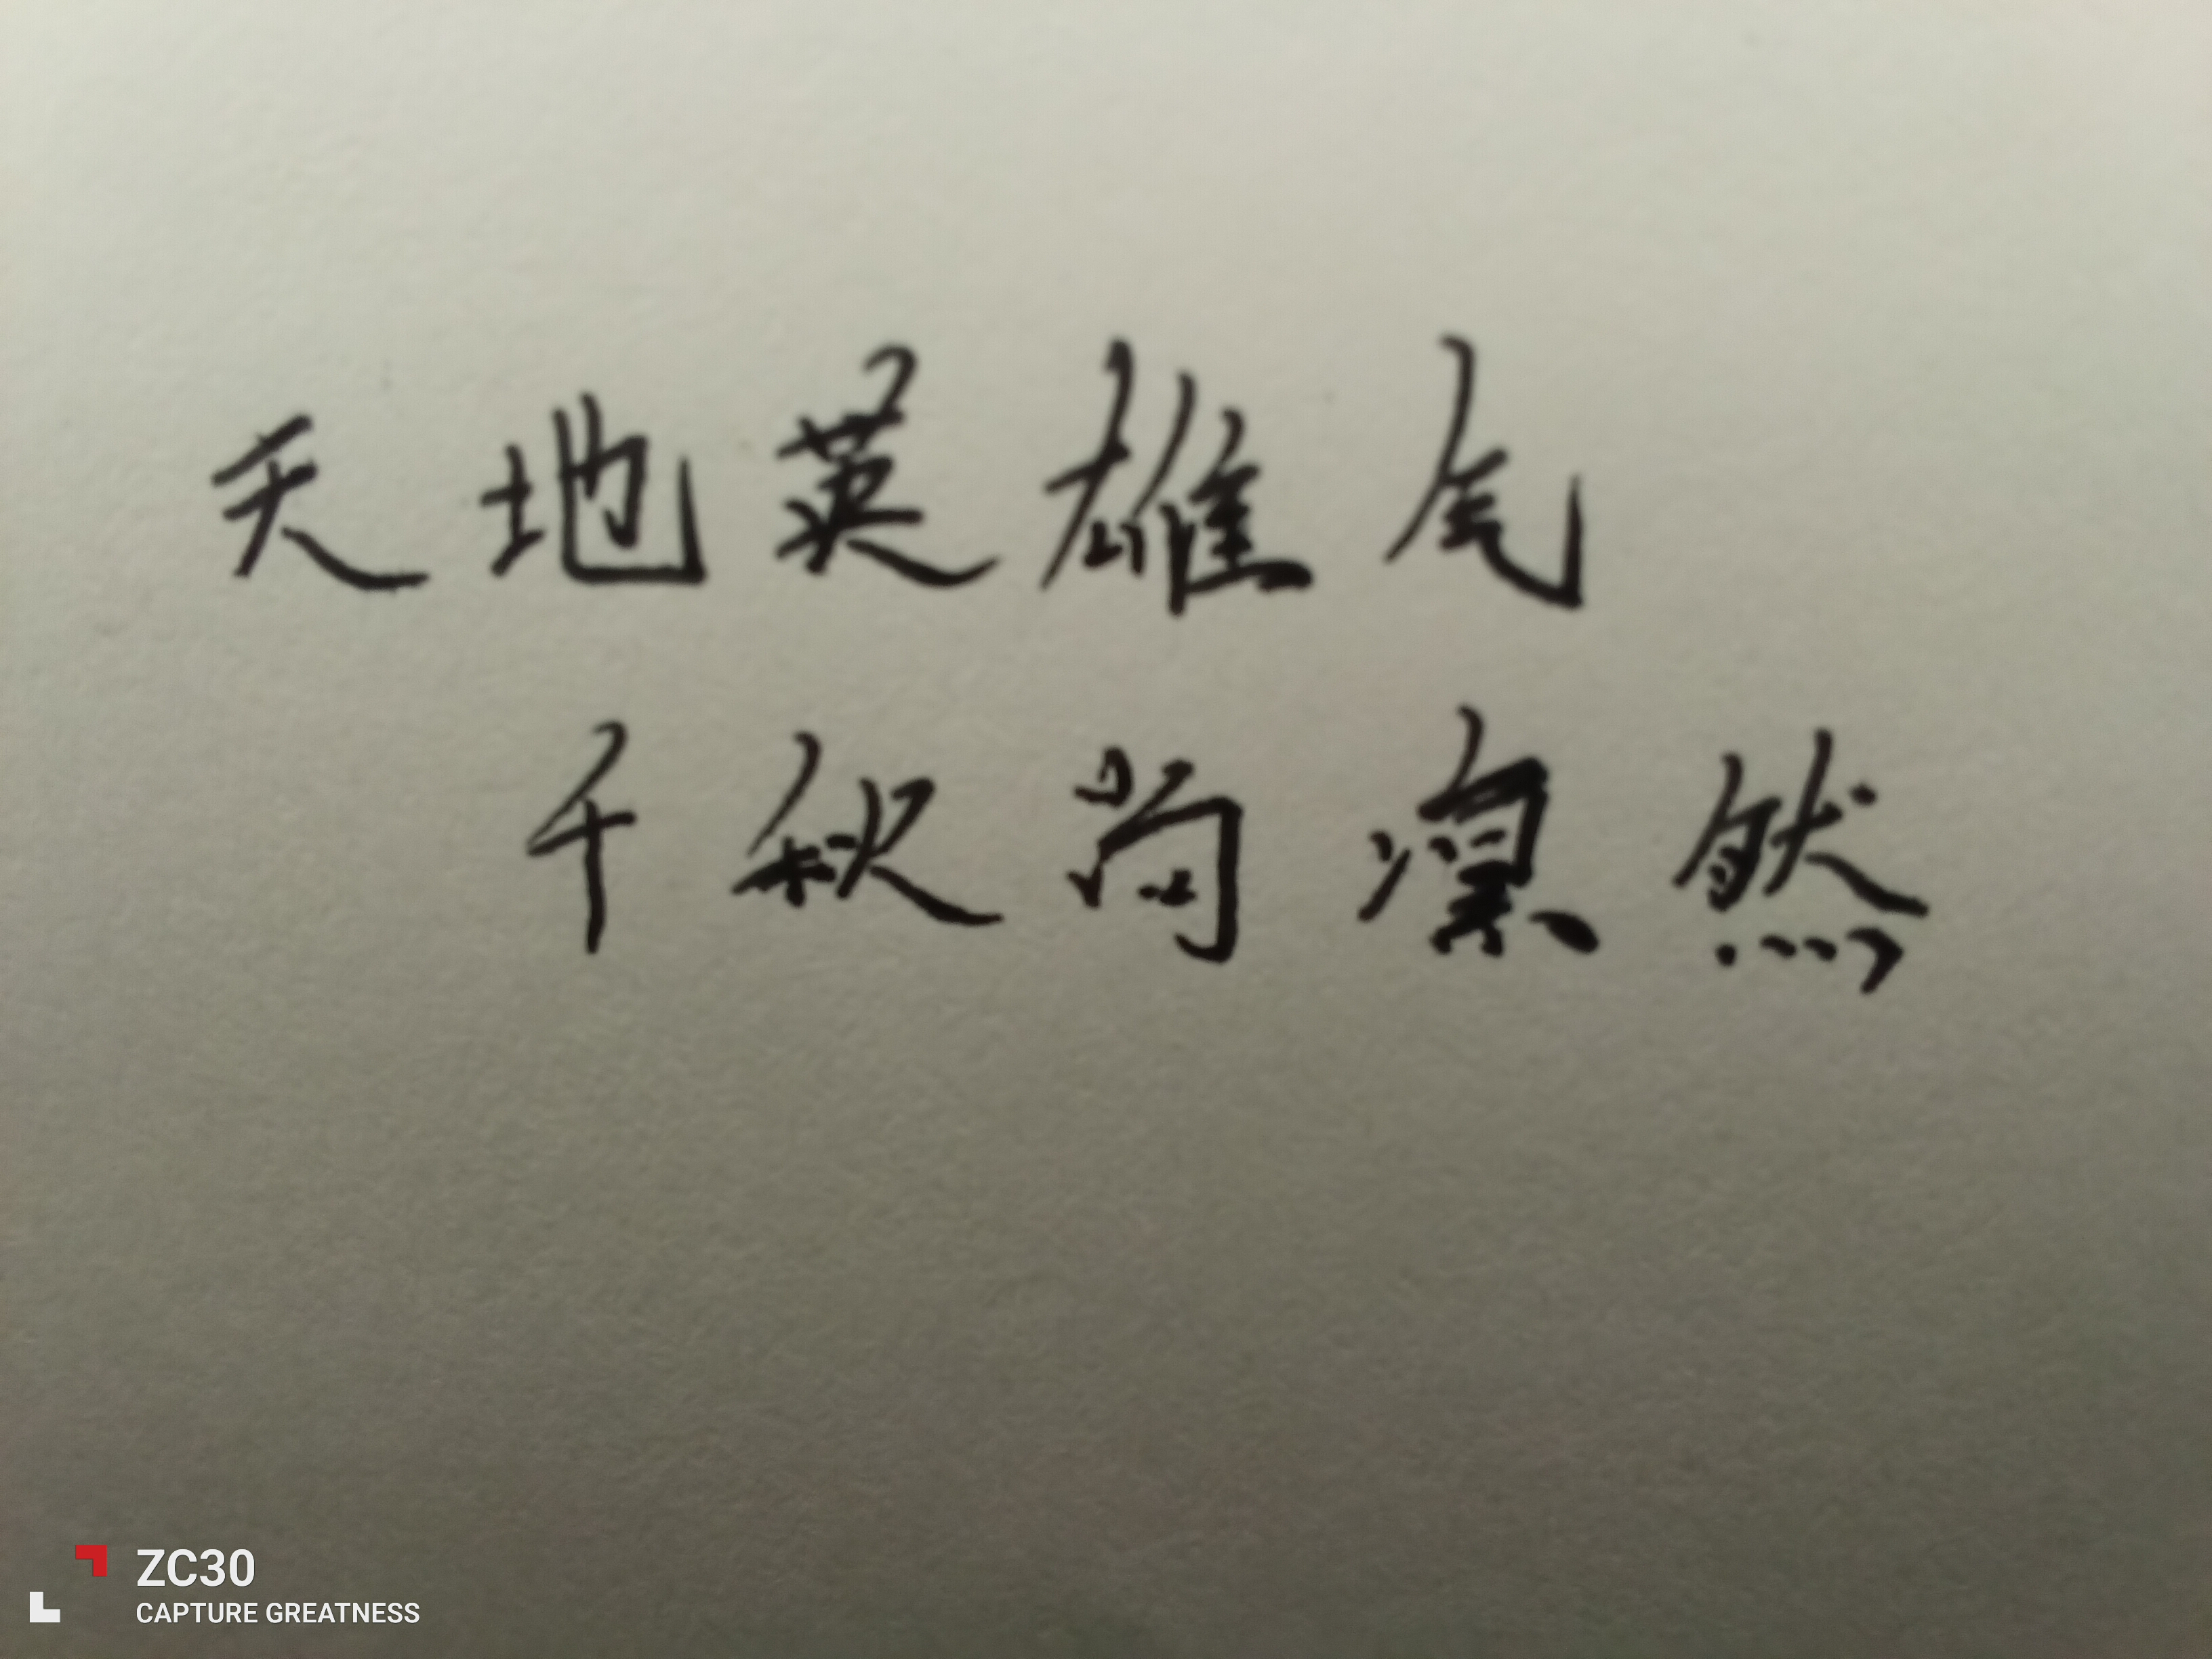 天地英雄气
千秋尚凛然
ZC30
CAPTURE GREATNESS